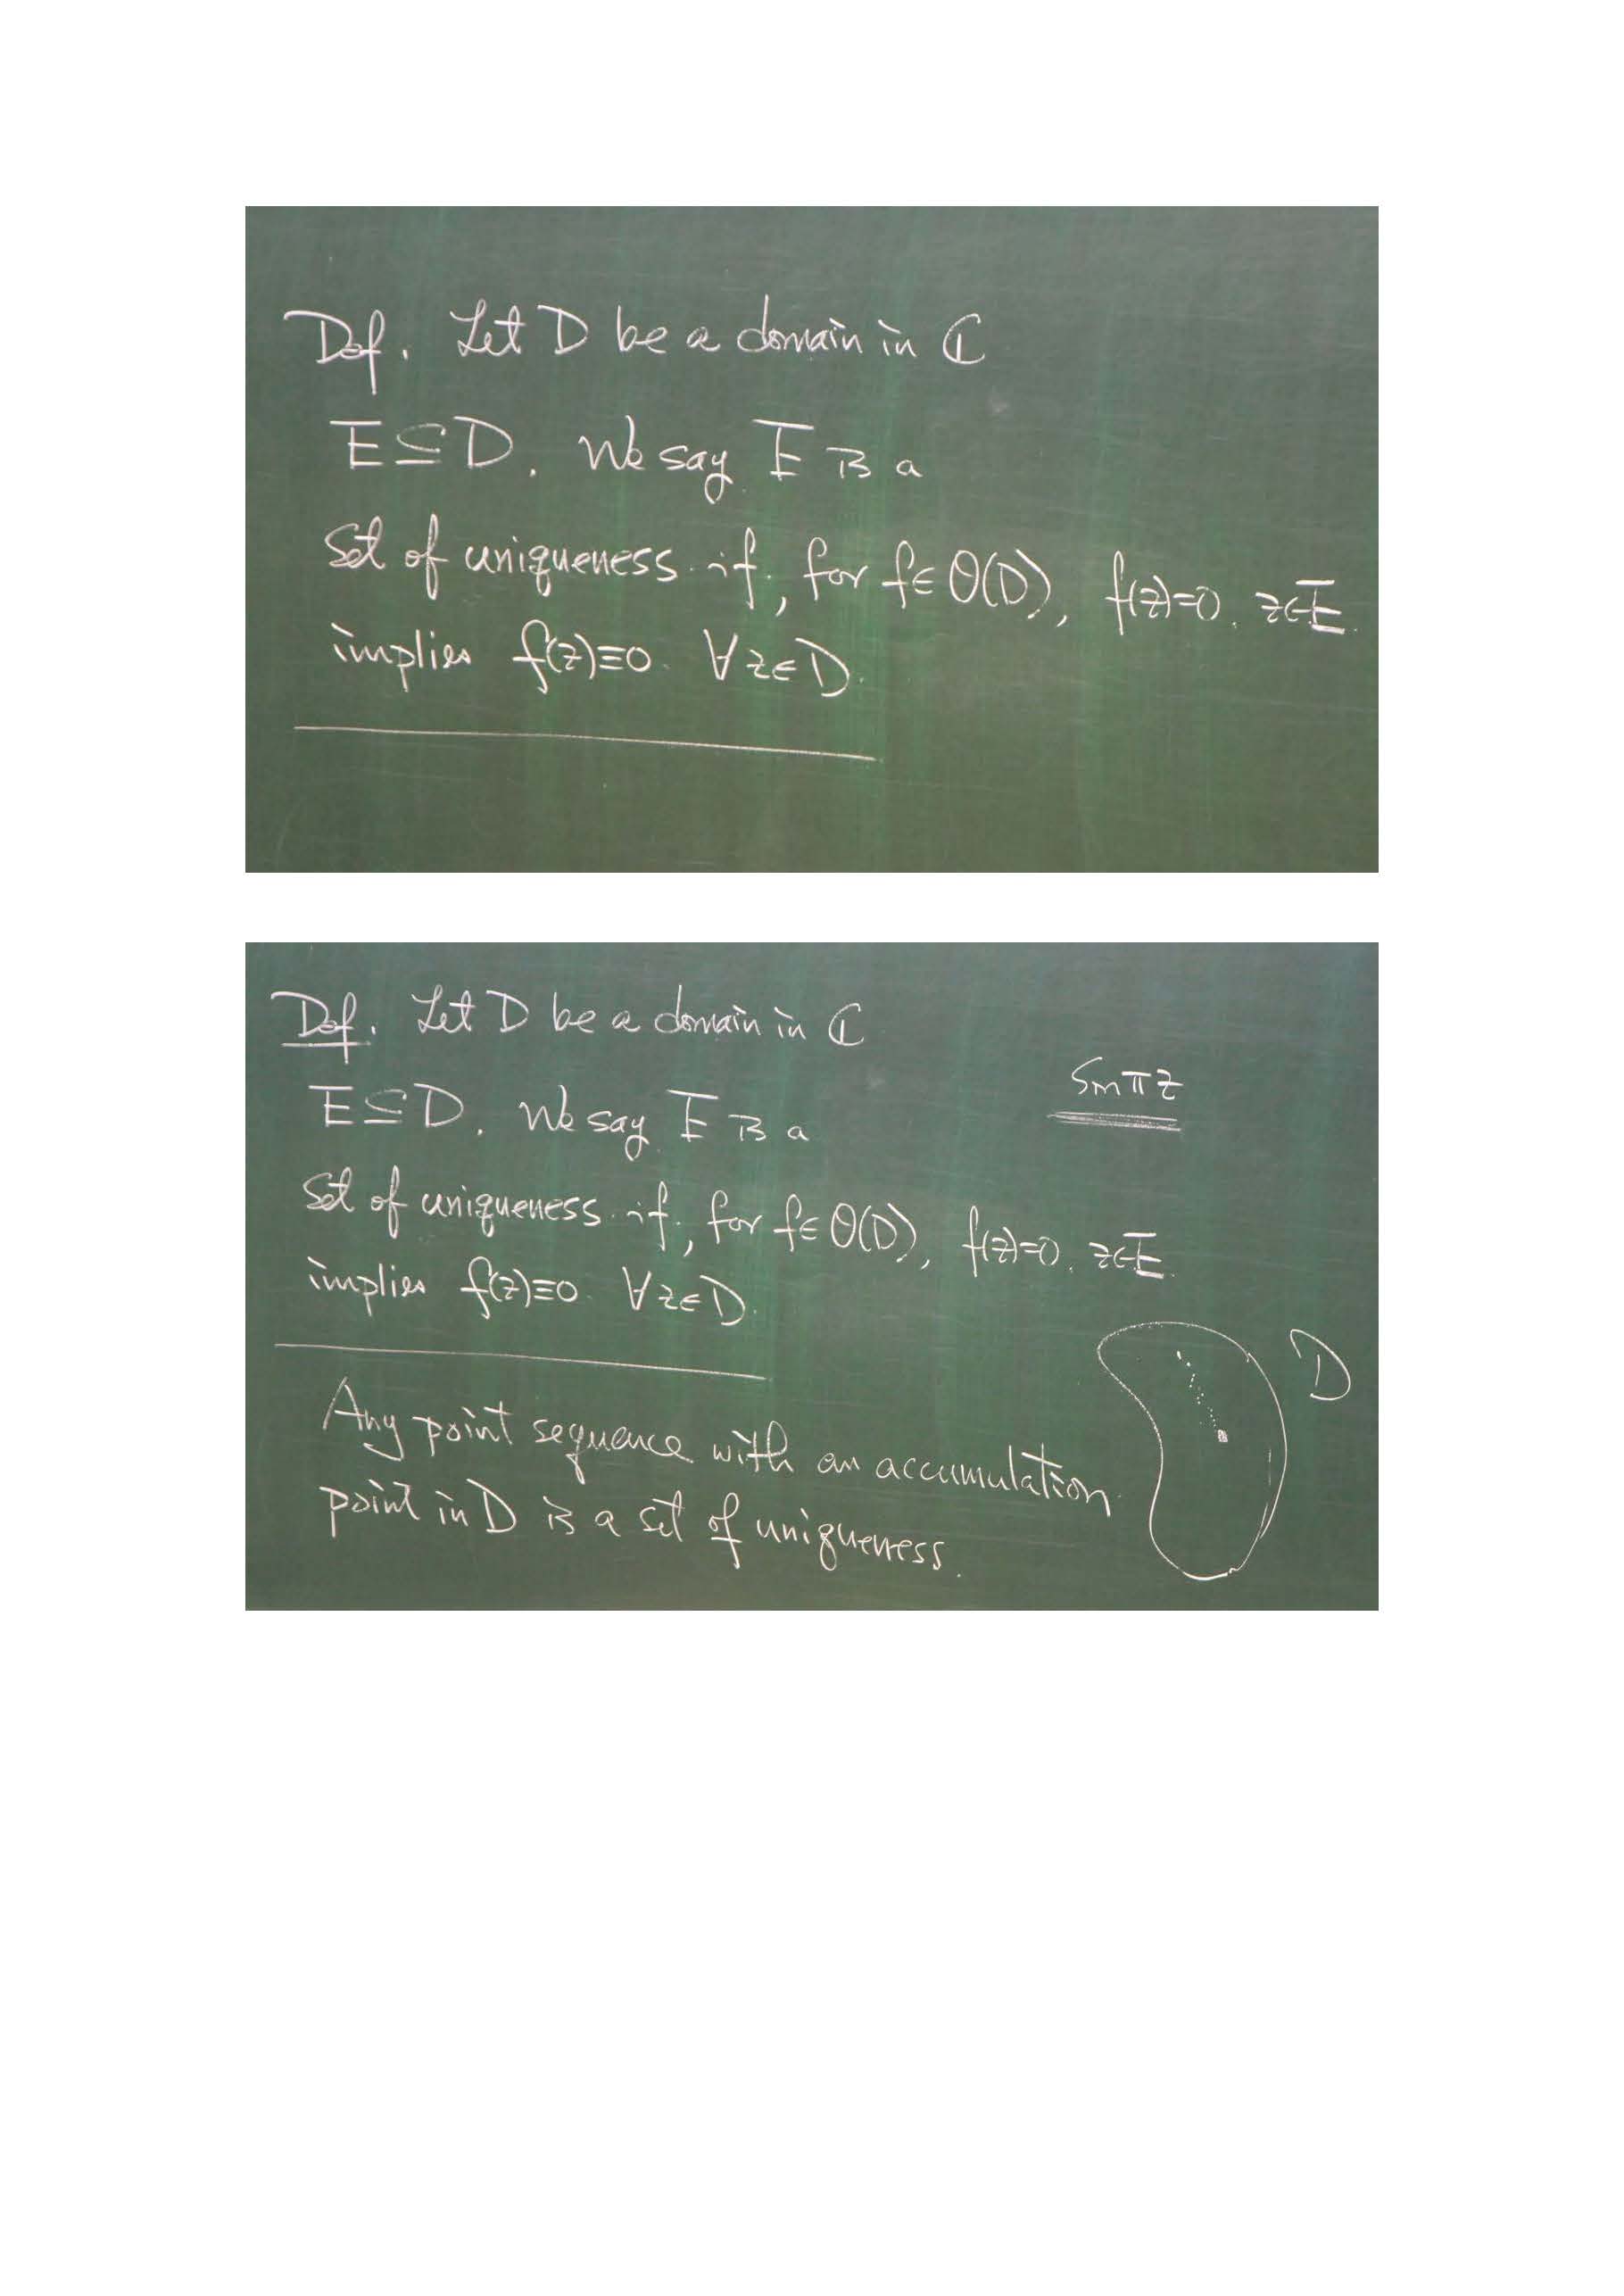 Def. Let D be a domain in ℂ
E⊆D. We say E is a
set of uniqueness if, for f∈O(D), f(z)=0, z∈E.
implies f(z)≡0 ∀z∈D.
Def. Let D be a domain in ℂ
sin πz
E⊆D. We say E is a
set of uniqueness if, for f∈O(D), f(z)=0, z∈E.
implies f(z)≡0 ∀z∈D.
D
Any point sequence with an accumulation
point in D is a set of uniqueness.